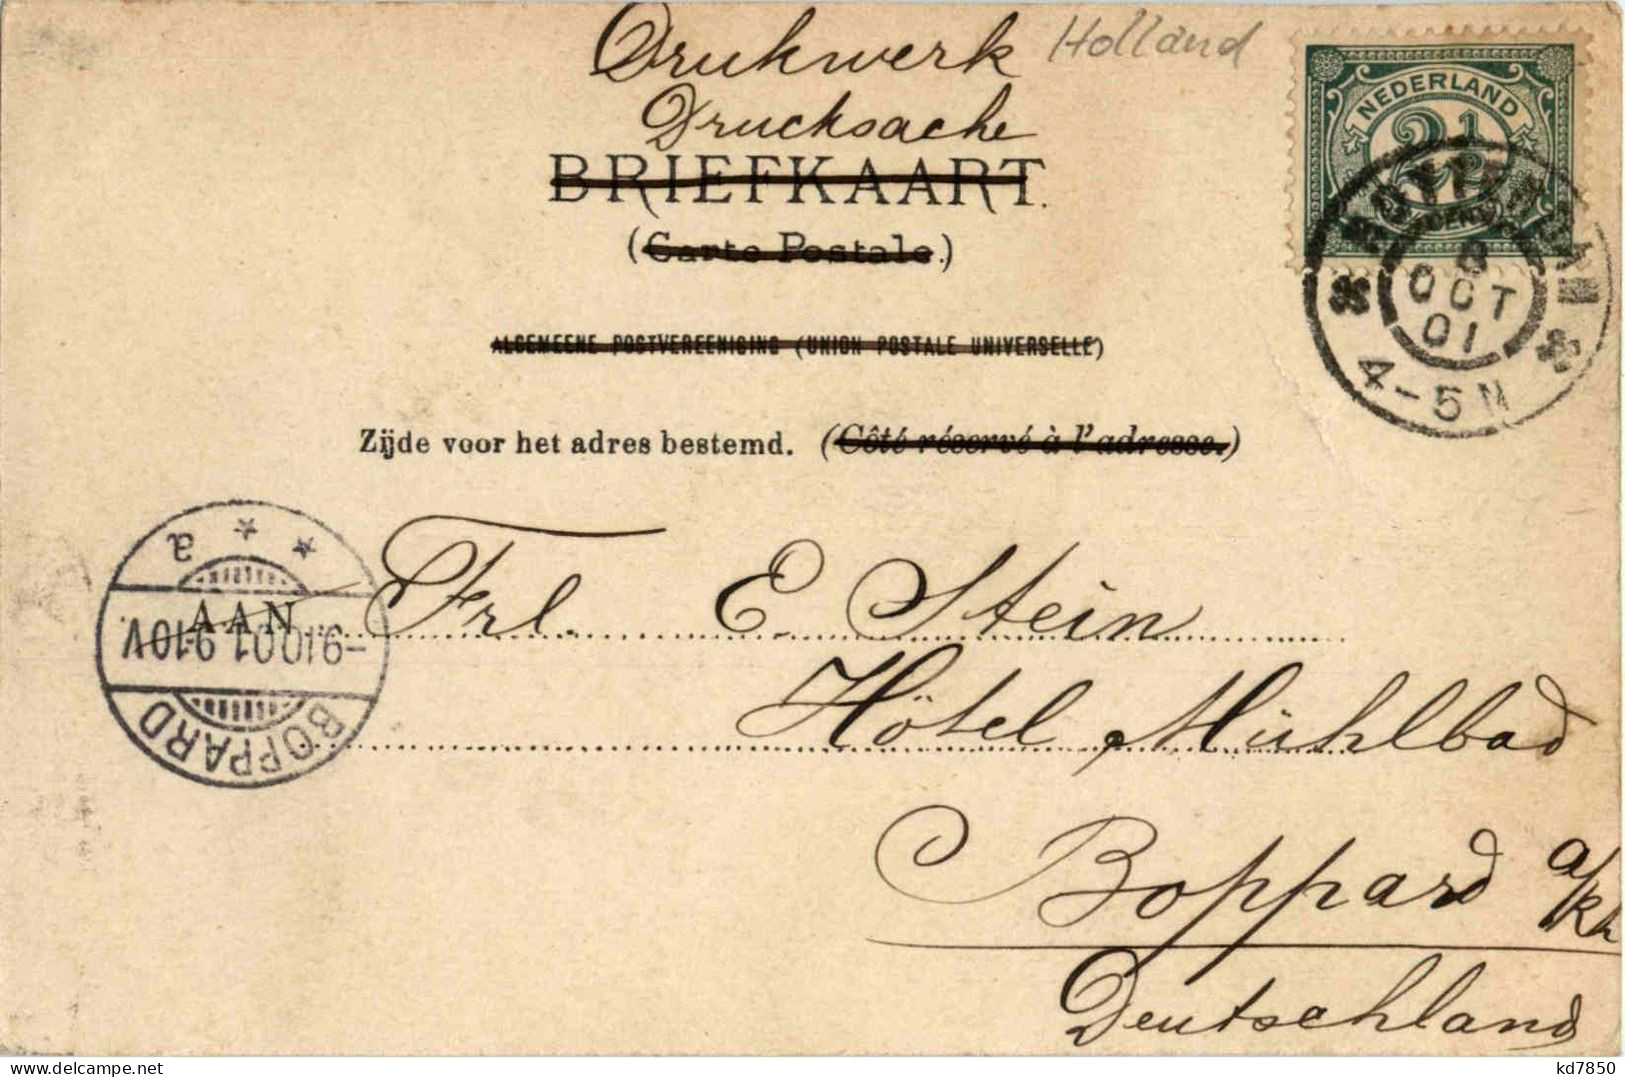 Drukwerk
Holland
Drucksache
BRIEFKAART.
(Carte Postale.)
ALGEMEENE POSTVEREENIGING (UNION POSTALE UNIVERSELLE)
Zijde voor het adres bestemd. (Côté réservé à l'adresse.)
NEDERLAND
2½
ROTTERDAM
8
OCT
01
4-5N
a
AAN
-9.10.01.9-10V
BOPPARD
Frl. E. Stein
Hôtel Mühlbad
Boppard a/Rh
Deutschland
kd7850